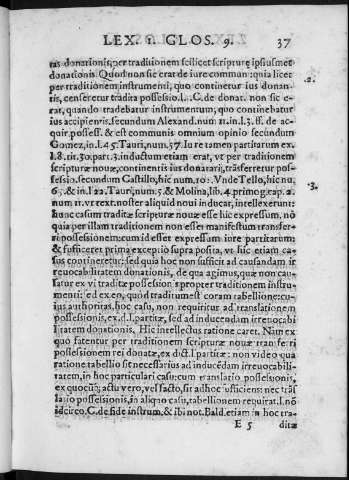 LEX. 1. GLOS. 9. 37
tas donationis, per traditionem scilicet scripturę ipsiusmet
donationis. Quod non sic erat de iure commun: quia licet
per traditionem instrumenti, quo continetur ius donan-
tis, censeretur tradita possessio. l. 1. C. de donat. non sic e-
rat, quando tradebatur instrumentum, quo continebatur
ius accipientis. secundum Alexand. num. 11. in. l. 3. ff. de ac-
quir. possess. & est communis omnium opinio secundum
Gomez, in. l. 45. Tauri, num. 37. Iure tamen partitarum ex.
l. 8. tit. 30. part. 3. inductum etiam erat, vt per traditionem
scripturæ nouæ, continentis ius donatarij, trāsferretur pos-
sessio. secundum Castillo, hic num. 103. Vnde Tello, hic nu.
65. & in. l 22. Tauri, num. 5. & Molina, lib. 4. primog. cap. 2.
num. 11. vt rext. noster aliquid noui inducar, intellexerunt:
hunc casum traditæ scripturæ nouæ esse hic expressum, nō
quia per illam traditionem non esset manifestum transfer-
ri possessionem: cum id esset expressum iure partitarum:
& sufficeret prima exceptio supra posita, vt hic etiam ca-
sus contineretur: sed quia hoc non sufficit ad causandam ir
reuocabilitatem donationis, de qua agimus, quæ non cau-
satur ex vi traditæ possessionis propter traditionem instru-
menti: ed ex eo, quòd traditum est coram tabellione: cu-
ius authoritas, hoc casu, non requiritur ad translationem
possessionis, ex. d. l. partitæ, sed ad inducendam irreuocabi
litatem donationis. Hic intellectus ratione caret. Nam ex
quo fatentur per traditionem scripturæ nouæ transferri
possessionem rei donatæ, ex dict. l. partitæ: non video qua
ratione tabellio sit necessarius ad inducēdam irreuocabili-
tatem, in hoc particulari casu: cum translatio possessionis,
ex quocūq; actu vero, vel facto, sit adhoc sufficiens: nec trās
latio possessionis, in aliquo casu, tabellionem requirat. l. nō
idcirco. C. de fide instrum. & ibi not. Bald. etiam in hoc tra-
E 5 ditæ
.2.
.3.